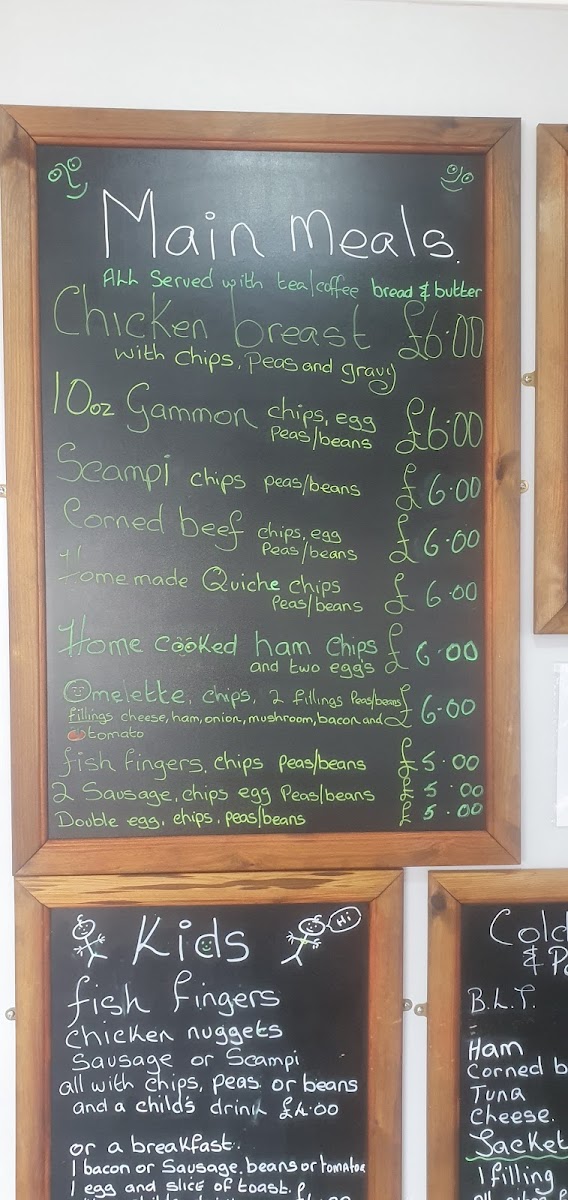 Main Meals.
ALL Served with tea/coffee bread & butter
Chicken breast £6.00
with chips, peas and gravy
10oz Gammon chips, egg £6.00
Peas/beans
Scampi chips peas/beans £6.00
Corned beef chips, egg £6.00
Peas/beans
Home made Quiche chips £6.00
Peas/beans
Home cooked ham Chips £6.00
and two egg's
Omelette, chips, 2 fillings Peas/beans £6.00
fillings cheese, ham, onion, mushroom, bacon and
tomato
fish fingers, chips peas/beans £5.00
2 Sausage, chips egg Peas/beans £5.00
Double egg, chips, peas/beans £5.00
Kids
Hi
fish fingers
chicken nuggets
Sausage or Scampi
all with chips, peas or beans
and a child's drink £4.00
or a breakfast.
1 bacon or Sausage, beans or tomatoe
1 egg and slice of toast.
Cold
& P
B.L.T.
Ham
Corned b
Tuna
Cheese.
Jacket
1 filling